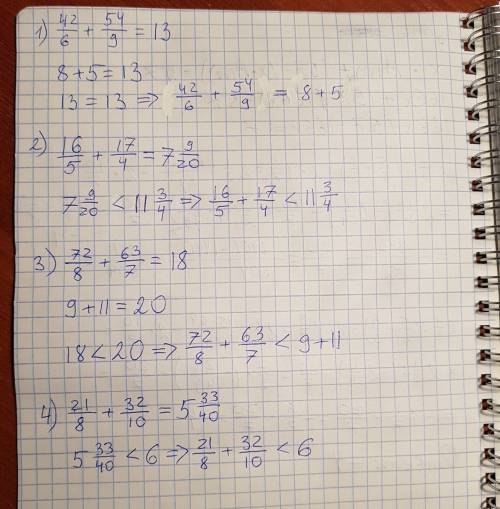 1) 42/6 + 54/9 = 13
8+5=13
13=13 => 42/6 + 54/9 = 8+5
2) 16/5 + 17/4 = 7 9/20
7 9/20 < 11 3/4 => 16/5 + 17/4 < 11 3/4
3) 72/8 + 63/7 = 18
9+11=20
18<20 => 72/8 + 63/7 < 9+11
4) 21/8 + 32/10 = 5 33/40
5 33/40 < 6 => 21/8 + 32/10 < 6